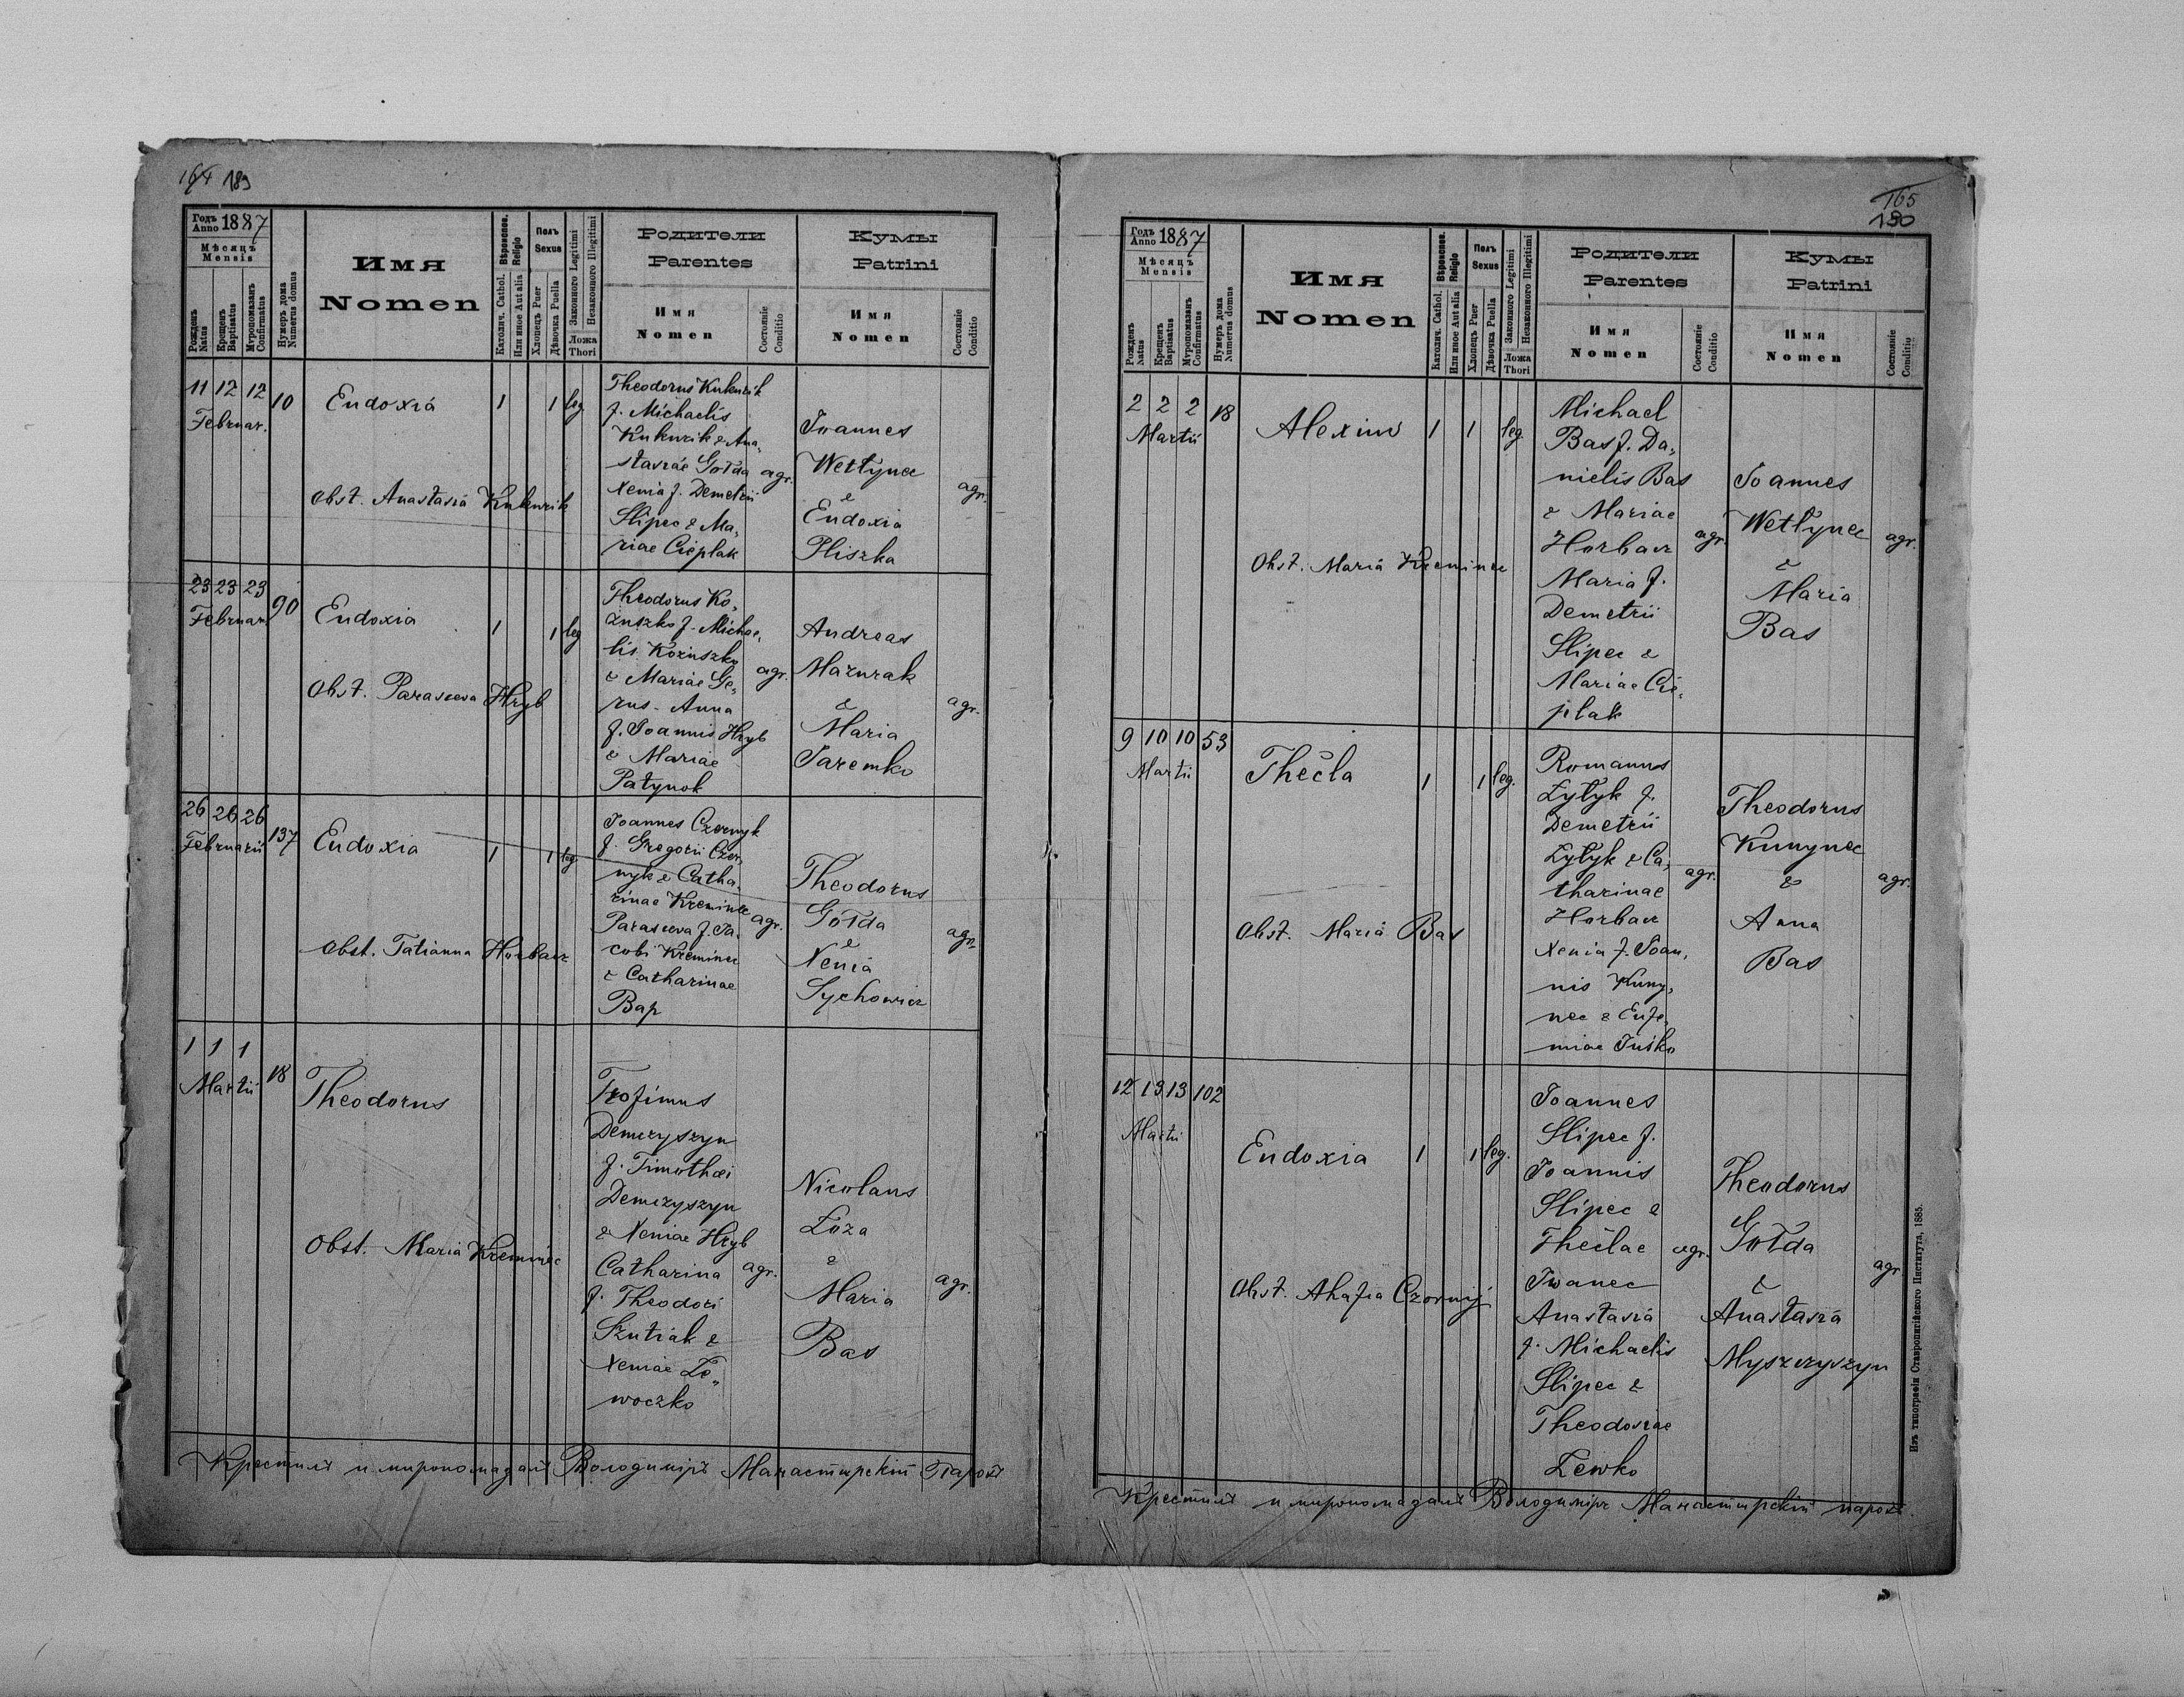 164 189
Годъ Anno 1887
Мѣсяцъ
Mensis
Рожденъ Natus
Крещенъ Baptisatus
Мѵропомазанъ Confirmatus
Нумеръ дома Numerus domus
Имя
Nomen
Вѣроиспов. Religio
Католич. Cathol.
Или иное Aut alia
Полъ
Sexus
Хлопецъ Puer
Дѣвочка Puella
Законного Legitimi
Незаконного Illegitimi
Ложа
Thori
Родители
Parentes
Имя
Nomen
Состояніе
Conditio
Кумы
Patrini
Имя
Nomen
Состояніе
Conditio
11 12 12 10
Februar.
Eudoxia
1 1 leg
Obst. Anastasia Kukurik
Theodorus Kukurik
f. Michaelis
Kukurik & Ana„
stasiae Gołda agr.
Xenia f. Demetrii
Slipec & Ma„
riae Cieplak
Joannes
Wetłynec
&
Eudoxia
Pliszka
agr.
23 23 23 90
Februar.
Eudoxia
1 1 leg
Obst. Parasceva Hryb
Theodorus Ko„
żuszko f. Michae„
lis Kożuszko
& Mariae Ge„
rus - Anna
f. Joannis Hryb
& Mariae
Patynok
agr.
Andreas
Mazurak
&
Maria
Jaremko
agr.
26 26 26 137
Februarii
Eudoxia
1 1 leg
Obst. Tatianna Horbacz
Joannes Czornyk
f. Gregorii Czor„
nyk & Catha„
rinae Kreminec
Parasceva f. Ja„
cobi Kreminec
& Catharinae
Bap
agr.
Theodorus
Gołda
&
Xenia
Sychowicz
agr.
1 1 1 18
Martii
Theodorus
Obst. Maria Kreminec
Trofimus
Demczyszyn
f. Timothei
Demczyszyn
& Xeniae Hryb
Catharina agr.
f. Theodori
Szutiak &
Xeniae Le„
woczko
Nicolaus
Łoza
&
Maria
Bas
agr.
Крестилъ и миропомазалъ Володимиръ Манастирскій Парохъ
165
190
Годъ Anno 1887
Мѣсяцъ
Mensis
Рожденъ Natus
Крещенъ Baptisatus
Мѵропомазанъ Confirmatus
Нумеръ дома Numerus domus
Имя
Nomen
Вѣроиспов. Religio
Католич. Cathol.
Или иное Aut alia
Полъ
Sexus
Хлопецъ Puer
Дѣвочка Puella
Законного Legitimi
Незаконного Illegitimi
Ложа
Thori
Родители
Parentes
Имя
Nomen
Состояніе
Conditio
Кумы
Patrini
Имя
Nomen
Состояніе
Conditio
2 2 2 18
Martii
Alexius
1 1 leg.
Obst. Maria Kreminec
Michael
Bas f. Da„
nielis Bas
& Mariae
Horbacz agr.
Maria f.
Demetrii
Slipec &
Mariae Cie„
plak
Joannes
Wetłynec
&
Maria
Bas
agr.
9 10 10 53
Martii
Thecla
1 1 leg.
Obst. Maria Bas
Romanus
Żytyk f.
Demetrii
Żytyk & Ca„
tharinae
Horbacz
Xenia f. Joan„
nis Kuny„
nec & Eufe„
miae Juśko
agr.
Theodorus
Kunynec
&
Anna
Bas
agr.
12 13 13 102
Martii
Eudoxia
1 1 leg.
Obst. Ahafia Czornyj
Joannes
Slipec f.
Joannis
Slipec &
Theclae agr.
Iwanec
Anastasia
f. Michaelis
Slipec &
Theodosiae
Lewko
Theodorus
Gołda
&
Anastasia
Myszczyszyn
agr.
Крестилъ и миропомазалъ Володимиръ Манастирскій парохъ.
Изъ типографіи Ставропигійского Института, 1885.